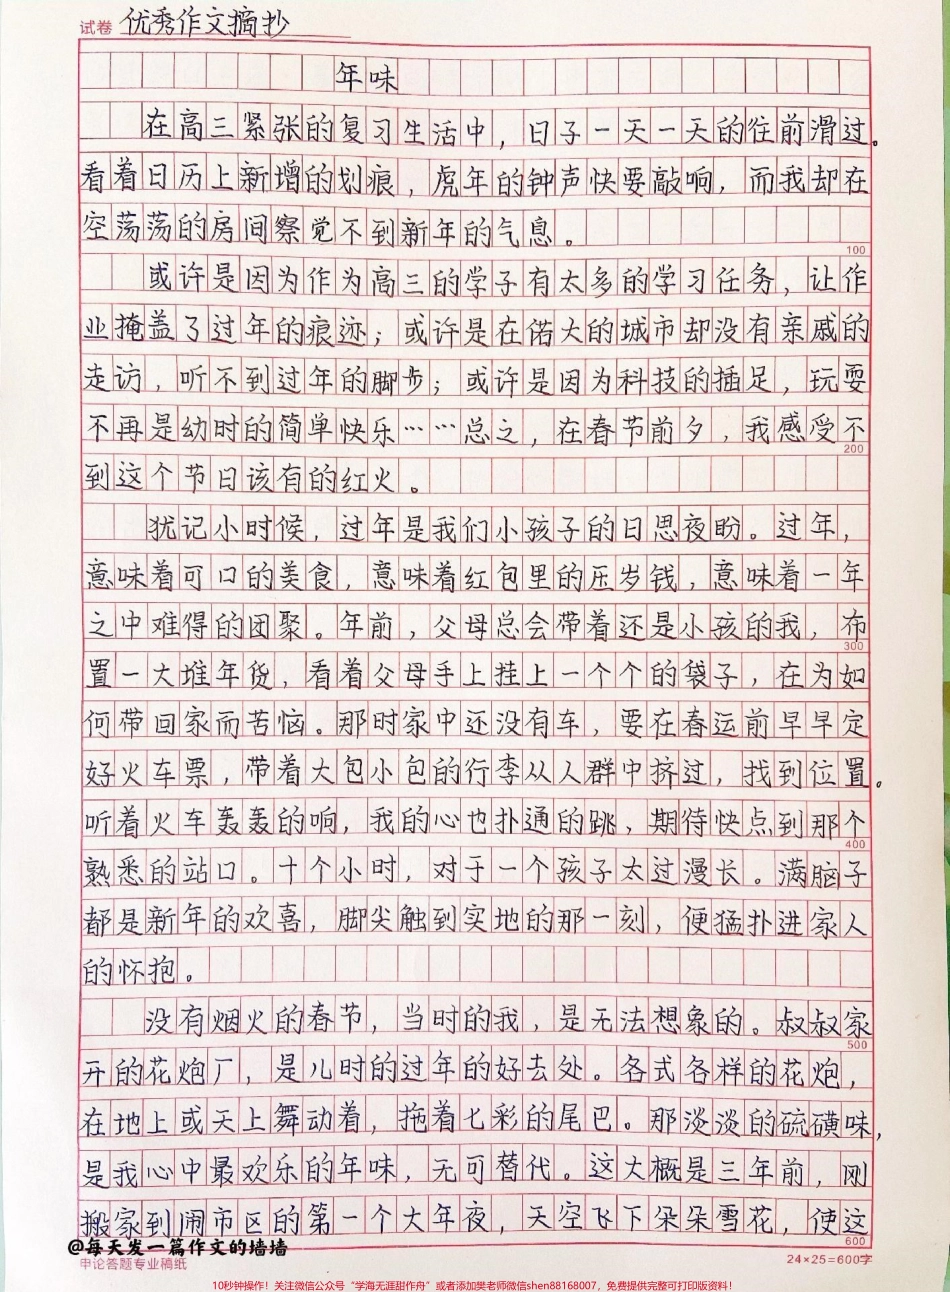 试卷 优秀作文摘抄
年味
在高三紧张的复习生活中，日子一天一天的往前滑过。
看着日历上新增的划痕，虎年的钟声快要敲响，而我却在
空荡荡的房间察觉不到新年的气息。
100
或许是因为作为高三的学子有太多的学习任务，让作
业掩盖了过年的痕迹；或许是在偌大的城市却没有亲戚的
走访，听不到过年的脚步；或许是因为科技的插足，玩耍
不再是幼时的简单快乐……总之，在春节前夕，我感受不
200
到这个节日该有的红火。
犹记小时候，过年是我们小孩子的日思夜盼。过年，
意味着可口的美食，意味着红包里的压岁钱，意味着一年
之中难得的团聚。年前，父母总会带着还是小孩的我，布
300
置一大堆年货，看着父母手上挂上一个个的袋子，在为如
何带回家而苦恼。那时家中还没有车，要在春运前早早定
好火车票，带着大包小包的行李从人群中挤过，找到位置。
听着火车轰轰的响，我的心也扑通的跳，期待快点到那个
400
熟悉的站口。十个小时，对于一个孩子太过漫长。满脑子
都是新年的欢喜，脚尖触到实地的那一刻，便猛扑进家人
的怀抱。
没有烟火的春节，当时的我，是无法想象的。叔叔家
500
开的花炮厂，是儿时的过年的好去处。各式各样的花炮，
在地上或天上舞动着，拖着七彩的尾巴。那淡淡的硫磺味，
是我心中最欢乐的年味，无可替代。这大概是三年前，刚
搬家到闹市区的第一个大年夜，天空飞下朵朵雪花，使这
600
@每天发一篇作文的墙墙
申论答题专业稿纸
24×25=600字
10秒钟操作！关注微信公众号“学海无涯甜作舟”或者添加樊老师微信shen88168007，免费提供完整可打印版资料！